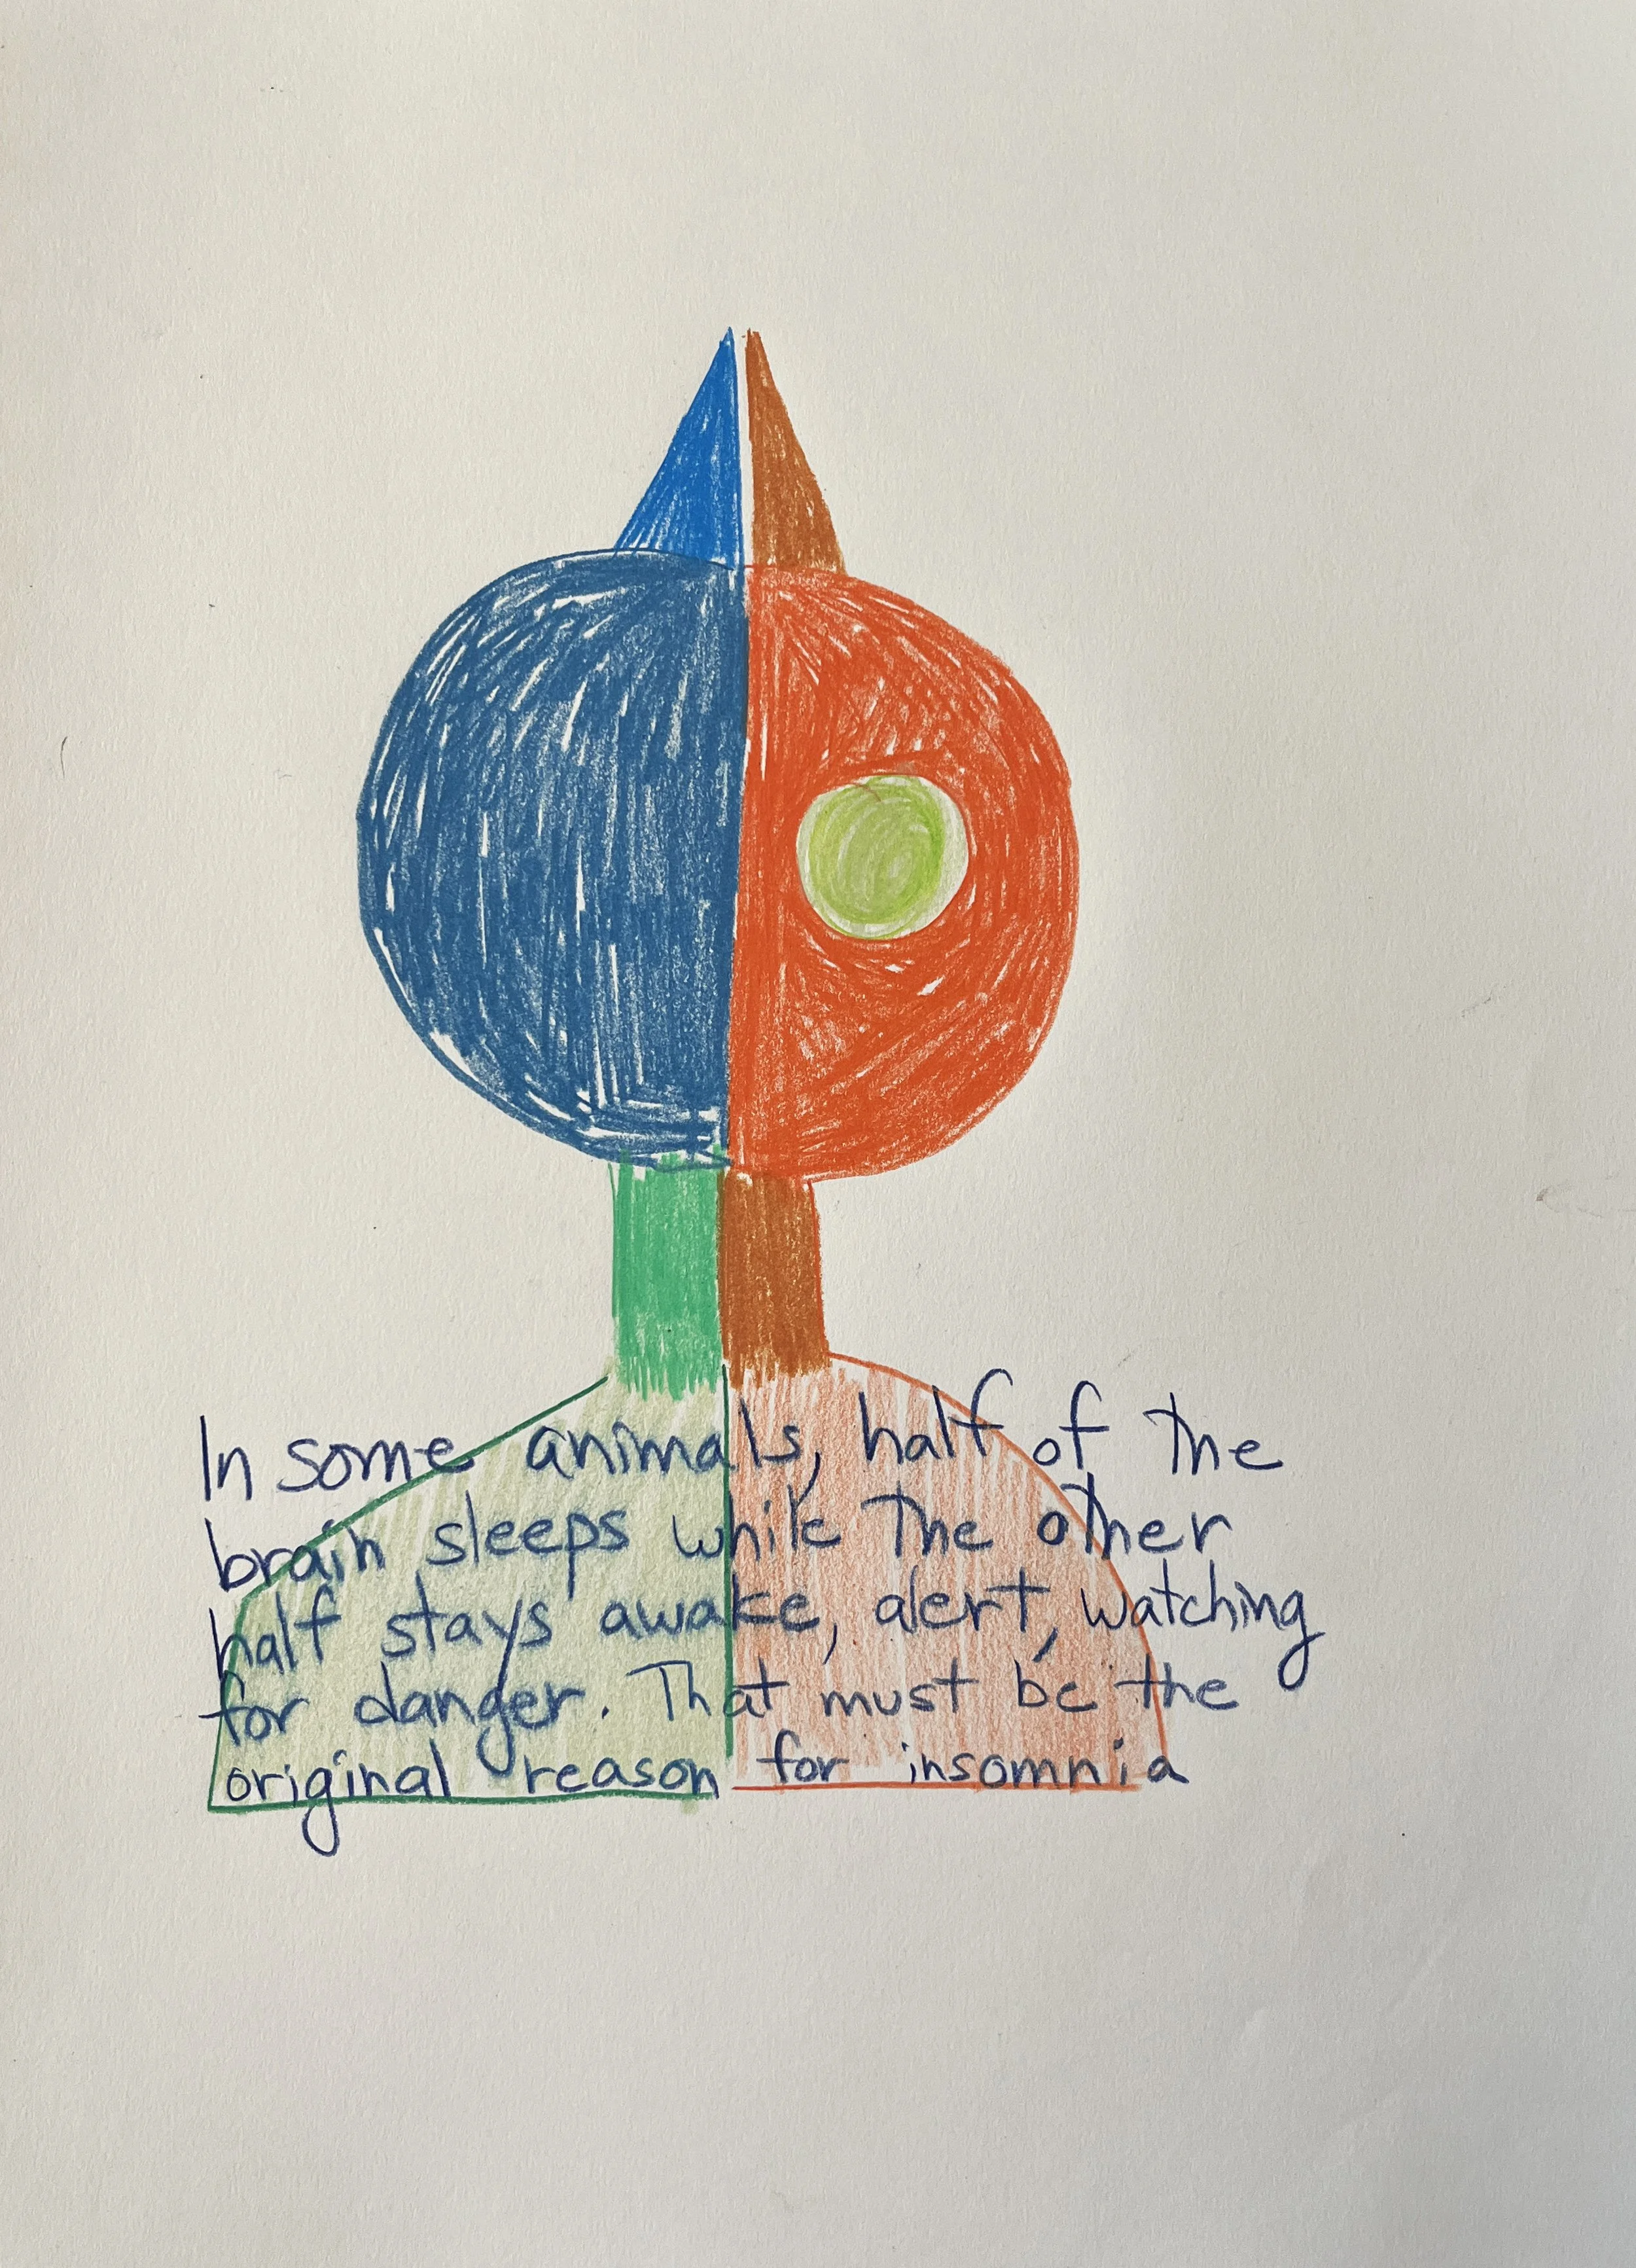 In some animals, half of the
brain sleeps while the other
half stays awake, alert, watching
for danger. That must be the
original reason for insomnia